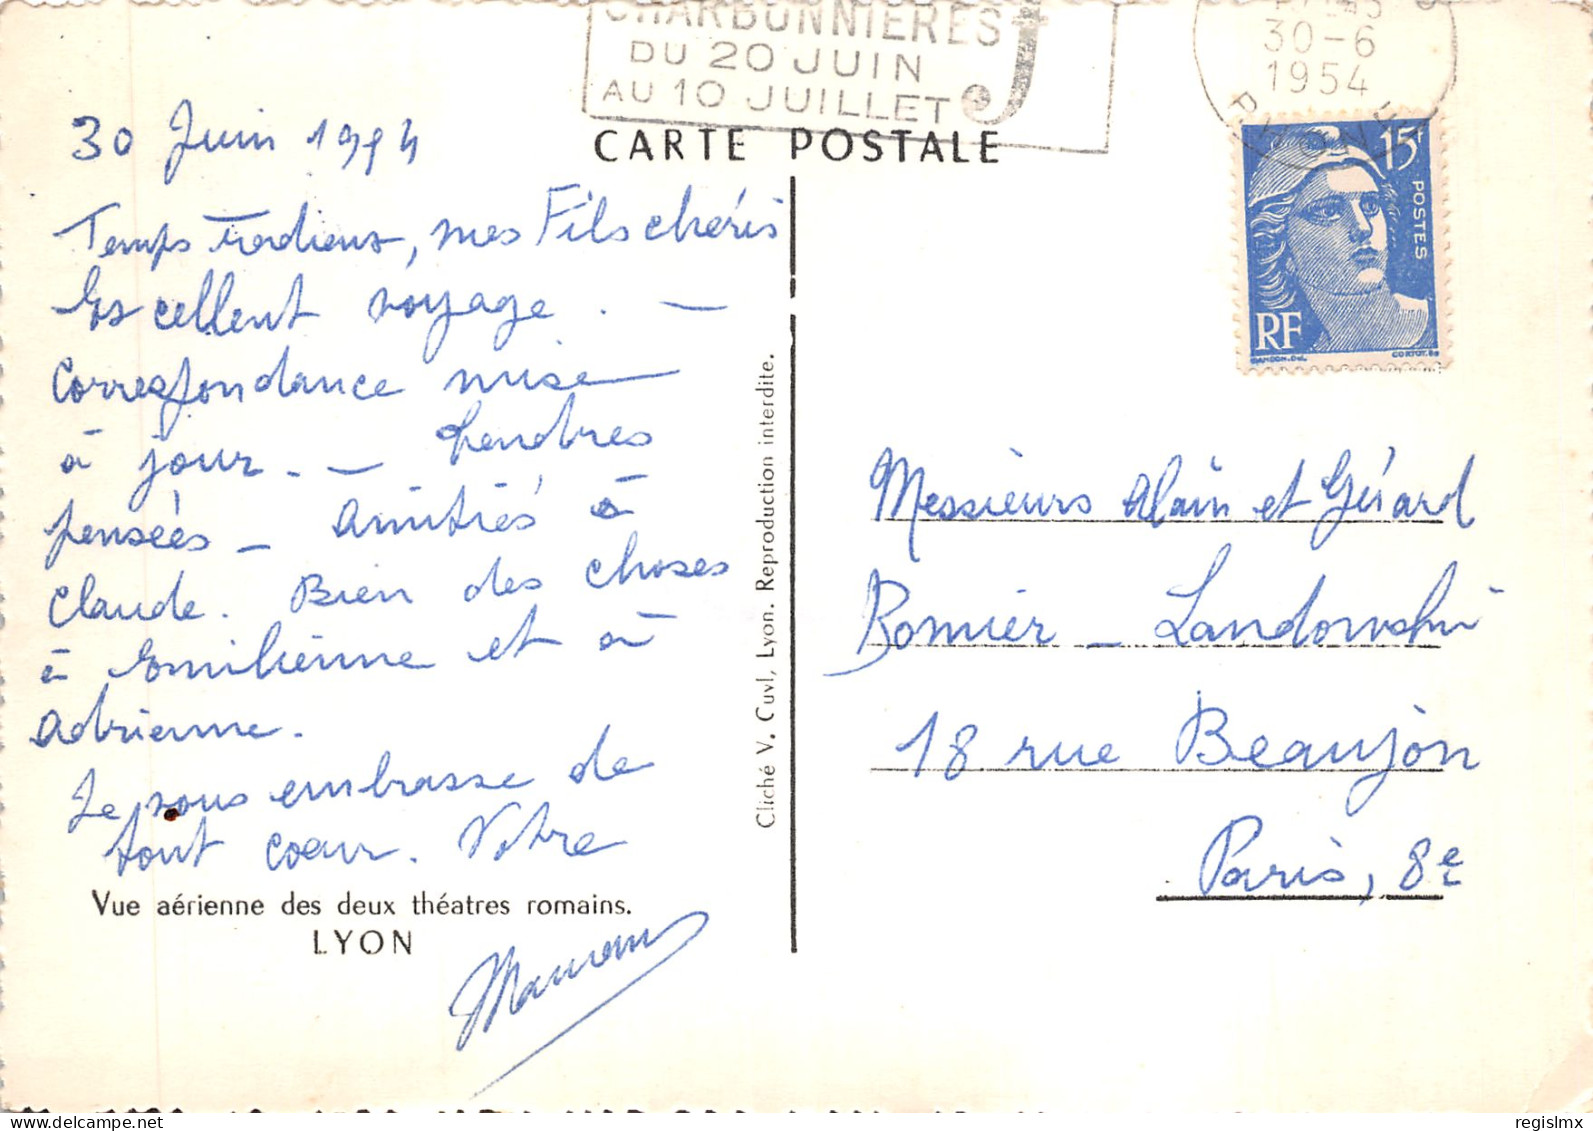 CHARBONNIERES
DU 20 JUIN
AU 10 JUILLET
30-6
1954
RHONE
CARTE POSTALE
15f
POSTES
RF
GANDON.Del.
CORTOT.Sc
30 Juin 1954
Temps radieux, mes Fils chéris
Excellent voyage. —
Correspondance mise
à jour. — Tendres
pensées — Amitiés à
Claude. Bien des choses
à Emilienne et à
Adrienne.
Je vous embrasse de
tout cœur. Votre
Maman
Vue aérienne des deux théatres romains.
LYON
Cliché V. Cuvl, Lyon. Reproduction interdite.
Messieurs Alain et Gérard
Bomier - Landowski
18 rue Beaujon
Paris, 8e
regislmx